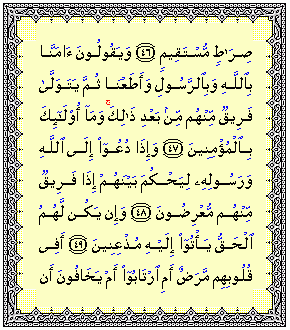 صِرَٰطٖ مُّسۡتَقِيمٖ ٤٦ وَيَقُولُونَ ءَامَنَّا
بِٱللَّهِ وَبِٱلرَّسُولِ وَأَطَعۡنَا ثُمَّ يَتَوَلَّىٰ
فَرِيقٞ مِّنۡهُم مِّنۢ بَعۡدِ ذَٰلِكَۚ وَمَآ أُوْلَٰٓئِكَ
بِٱلۡمُؤۡمِنِينَ ٤٧ وَإِذَا دُعُوٓاْ إِلَى ٱللَّهِ
وَرَسُولِهِۦ لِيَحۡكُمَ بَيۡنَهُمۡ إِذَا فَرِيقٞ
مِّنۡهُم مُّعۡرِضُونَ ٤٨ وَإِن يَكُن لَّهُمُ
ٱلۡحَقُّ يَأۡتُوٓاْ إِلَيۡهِ مُذۡعِنِينَ ٤٩ أَفِي
قُلُوبِهِم مَّرَضٌ أَمِ ٱرۡتَابُوٓاْ أَمۡ يَخَافُونَ أَن